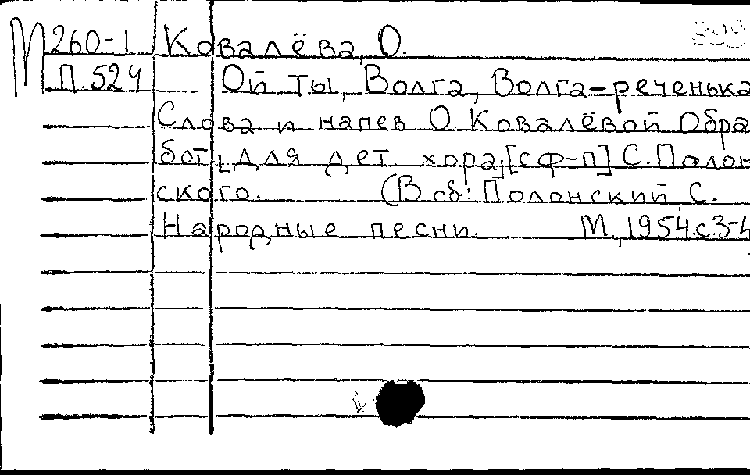 М 260-1 Ковалёва, О.
П 524 Ой ты, Волга, Волга-реченька
Слова и напев О. Ковалёвой Обра
бот. для дет. хора [с ф-п] С. Полон
ского. (В сб: Полонский С.
Народные песни. М., 1954, с.3-4